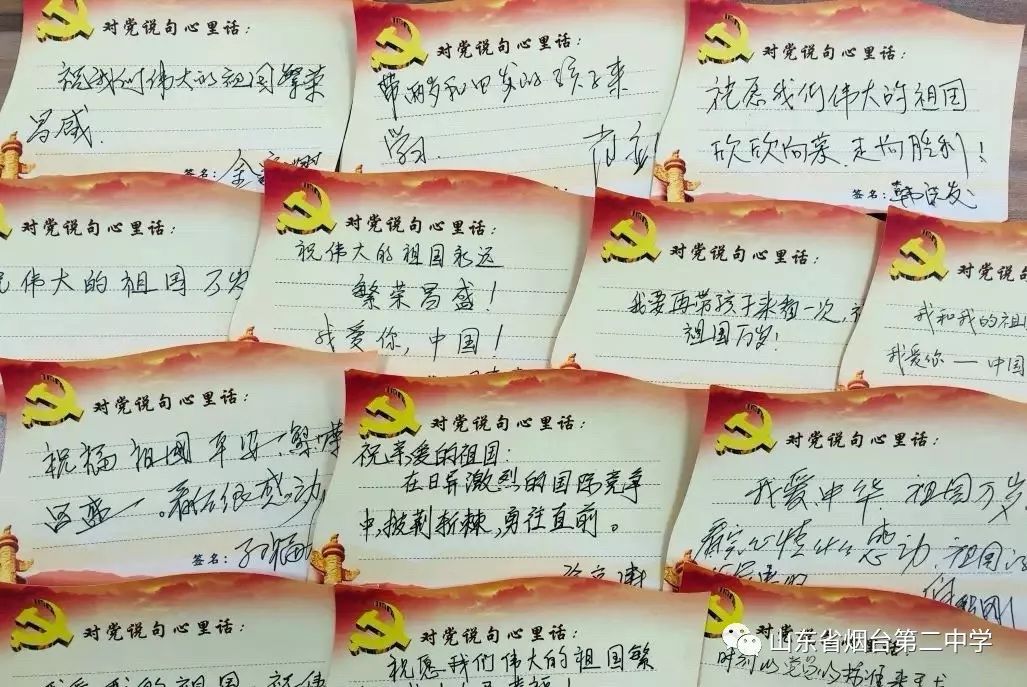 对党说句心里话：
祝我们伟大的祖国繁荣
昌盛.
签名：
对党说句心里话：
带两岁和四岁的孩子来
学习.
对党说句心里话：
祝愿我们伟大的祖国
欣欣向荣.走向胜利！
签名：韩
对党说句心里话：
伟大的祖国万岁
对党说句心里话：
祝伟大的祖国永远
繁荣昌盛！
我爱你,中国！
对党说句心里话：
我要再带孩子来 一次,
祖国万岁！
对党说句
我和我的祖
我爱你—中国
对党说句心里话：
祝福祖国平安.繁荣
昌盛—。看后很感动
签名：孙
对党说句心里话：
祝亲爱的祖国：
在日异激烈的国际竞争
中,披荆斩棘,勇往直前。
对党说句心里话：
我爱中华.祖国万岁
看完心情 感动.祖国
对党说句心里话：
我爱我的祖国.祝伟
对党说句心里话：
祝愿我们伟大的祖国繁
山东省烟台第二中学
时刻以党员的标准来